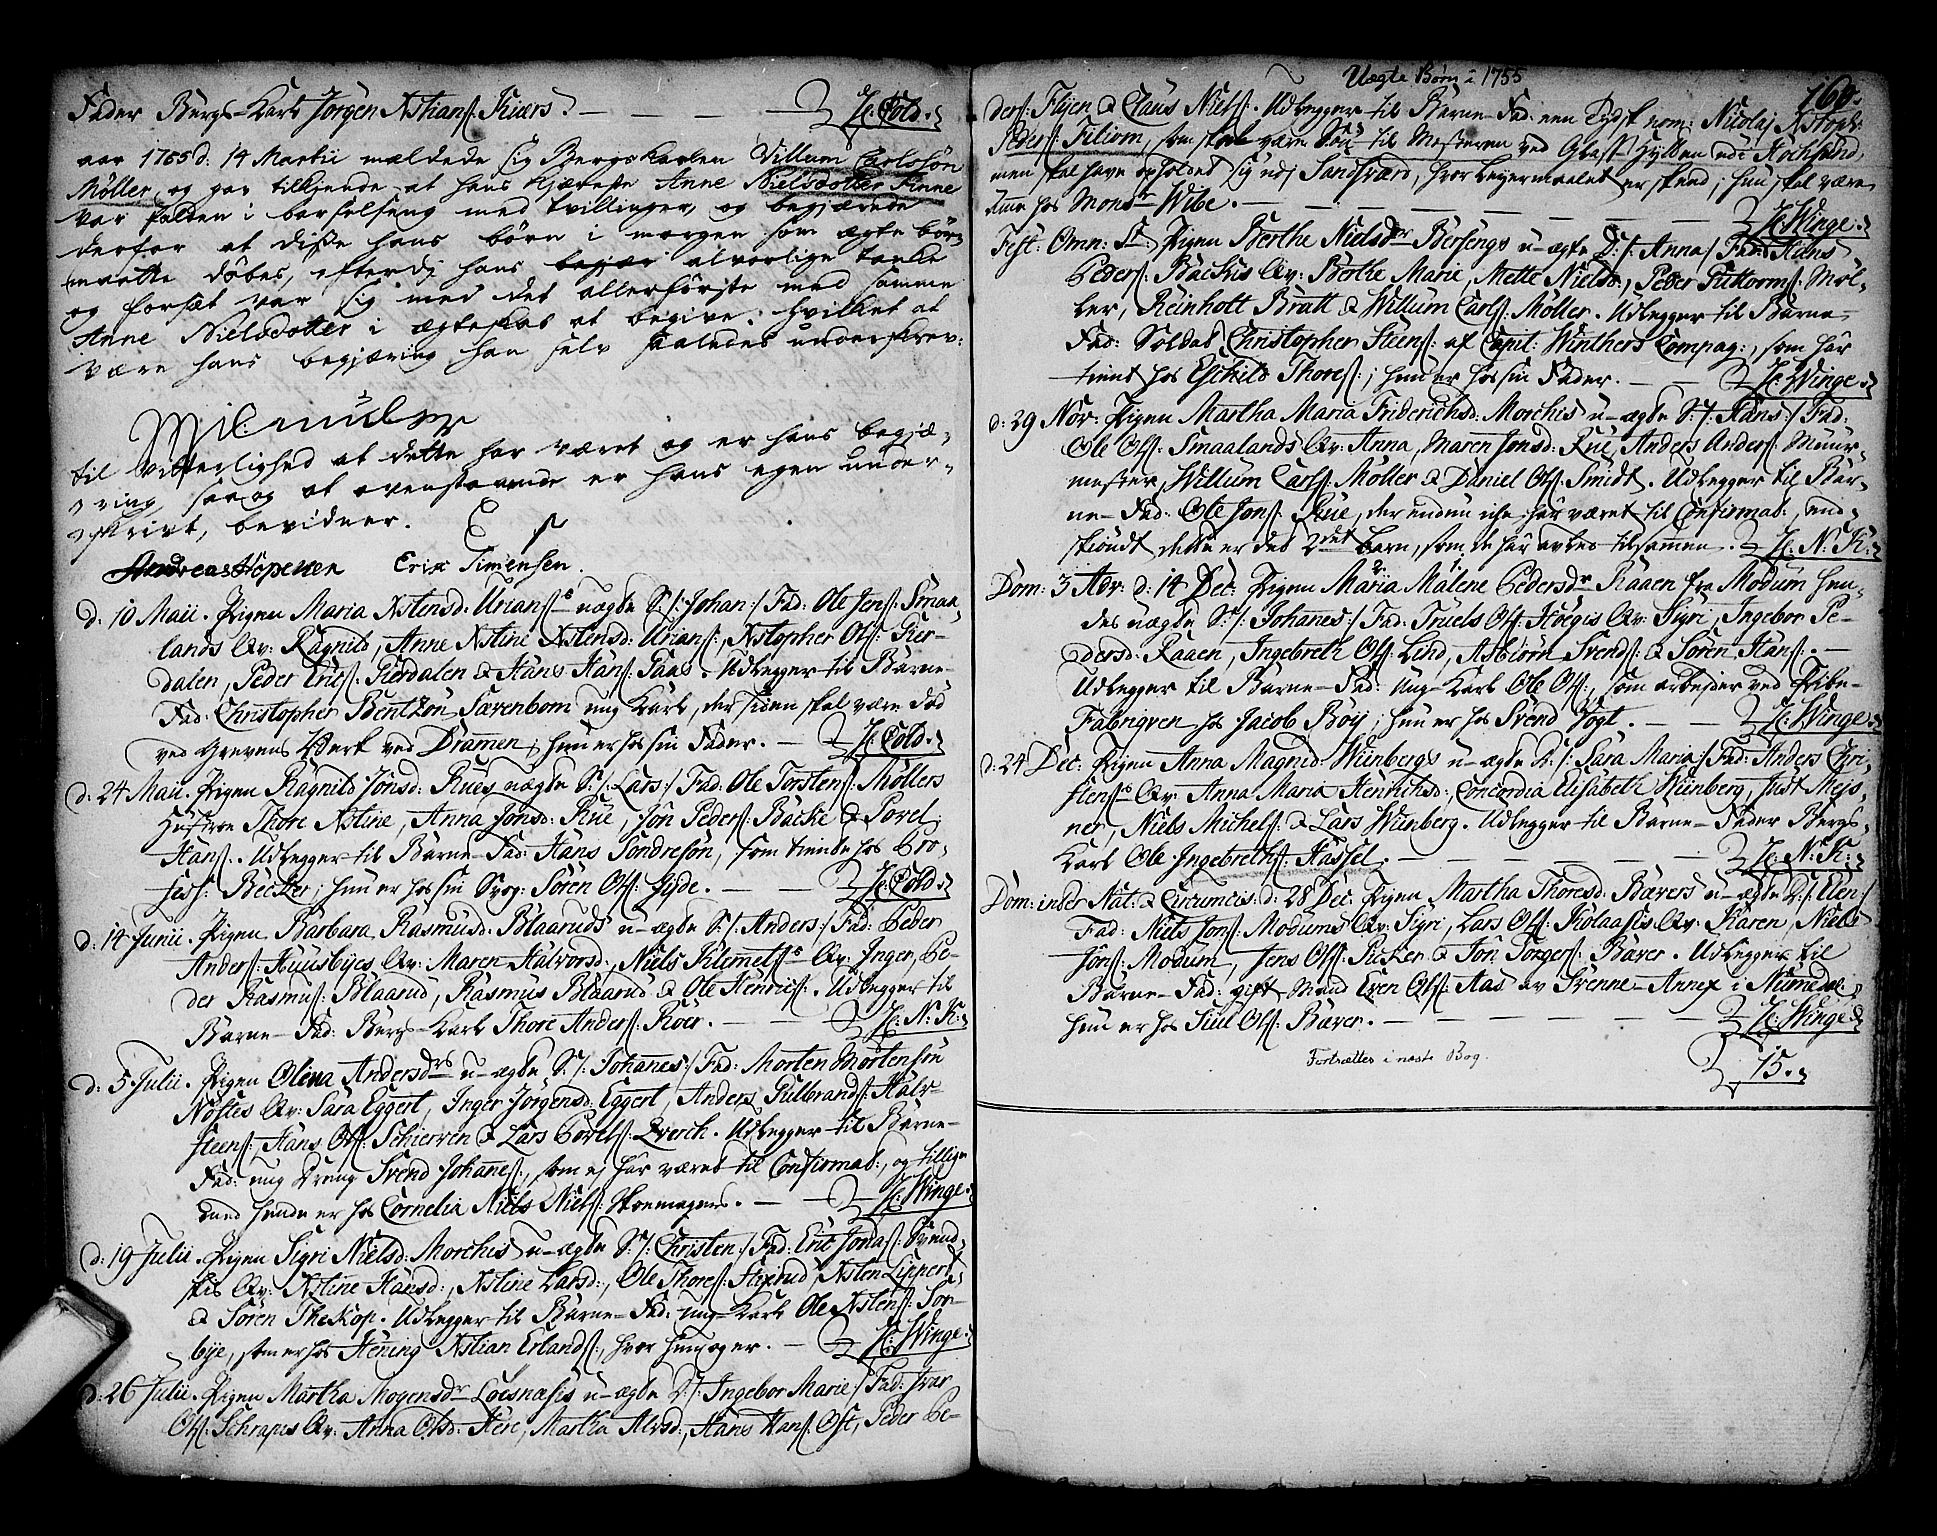 Fader Bergs-Karl Jörgen Xstians: Kiærs. — — — H: Cold.
aar 1755 d: 14 Martii mældede sig Bergskarlen Villum Carlssön
Möller, og gav tilkjende at hans Kjæreste Anne Nielsdotter Finne
var falden i barselseng med tvillinger, og begjærede
derfor at disse hans börn i morgen som ægte börn
maatte döbes, efterdj hans begjær alvorlige tanke
og forsæt var sig med det allerförste med samme
Anne Nielsdotter i ægteskab at begive: hvilket at
være hans begjæring han selv saaledes underskrev:
til Vitterlighed at dette har været og er hans begjæ-
ring, saa og at ovenstaaende er hans egen under-
skrivt, bevidner.
Andreas Höpener Eric Simensen.
d: 10 Maii. Pigen Maria Xstensd: Urians:s uægte S:/: Johan:/ Fad: Ole Jens: Smaa-
lands Qv: Ragnild, Anne Xstine Xstensd: Urians:, Xstopher Ols: Fier-
dalen, Peder Erics: Fierdalen & Hans Hans: Saas. Udlegger til Barne-
Fad: Christopher Bentzön Farenbom ung Karl, der siden skal være död
ved Grevens Verk ved Dramen; hun er hos sin Fader. — H: Cold.
d: 24 Maii. Pigen Ragnild Jonsd: Rues uægte S:/: Lars:/ Fad: Ole Torstens: Möllers
Hustroe Thore Xstine, Anna Jonsd: Rue, Jon Peders: Backe & Povel
Hans:. Udlegger til Barne-Fad: Hans Tondresön, som tiente hos Pro-
fess: Becker; hun er hos sin Svog: Sören Ols: Jyde. — — H: Cold.
d: 14 Junii. Pigen Barbara Rasmusd: Blaaruds u-ægte S:/: Anders:/ Fad: Peder
Anders: Huusbyes Qv: Maren Halvorsd:, Niels Klemets:s Qv: Inger, Pe-
der Rasmus: Blaarud, Rasmus Blaarud & Ole Henrics:. Udlegger til
Barne-Fad: Bergs-Karl Thore Anders: Koer. — — H: N: K:
d: 5 Julii. Pigen Olena Andersdrs u-ægte S:/: Johannes:/ Fad: Morten Mortensön
Nöstes Qv: Sara Eggert, Inger Jörgensd: Eggert, Anders Gulbrands: Halv-
steens:, Hans Ols: Schierven & Lars Povels: Qverch. Udlegger til Barne-
Fad: ung Dreng Svend Johannes:, som ej har været til Confirmat:, og tillige
med hende er hos Cornelia Niels Niels: Skoemagers. — — H: Winge.
d: 19 Julii. Pigen Sigri Nielsd: Morchis u-ægte S:/: Christen:/ Fad: Eric Jonas: Svend-
skes Qv: Xstine Hansd:, Xstine Larsd:, Ole Thores: Stixrud, Xsten Lippert
& Sören Theskop. Udlegger til Barne-Fad: ung-Karl Ole Xstens: Sor-
bye, som er hos Hening Xstian Erlands:, hvor hun og er. — H: Winge.
d: 26 Julii. Pigen Martha Mogensdr Loesnæsis u-ægte D:/: Ingebor Marie:/ Fad: Ivar
Ols: Schrapes Qv: Anna Olsd: Here, Martha Alvsd:, Hans Hans: Ost, Peder Pe-
Uægte Börn i 1755
160.
ders: Flyen & Claus Niels:. Udlegger til Barne-Fad: een Tydsk nom: Nicolaj Xstoph:
Peders: Filiom, som skal være Sön til Mesteren ved Glass-Hytten udi Hochsund,
men skal have opholdet sig udj Sandsværd, hvor Leyermaalet er skeed; hun skal være
tiene hos Monsr Wibe. — — — H: Winge.
Fest: Omn: St: Pigen Berthe Nielsdr Bersengs u-ægte D:/: Anna:/ Fad: Hans
Peders: Backis Qv: Berthe Marie, Mette Nielsd:, Peder Guttorms: Möl-
ler, Reinholt Bratt & Willum Carls: Möller. Udlegger til Barne-
Fad: Soldat Christopher Steens: af Capit: Winthers Compag:, som har
tient hos Eschild Thores:; hun er hos sin Fader. — — H: Winge.
d: 29 Nov: Pigen Martha Maria Friderichsd: Morchis u-ægte S:/: Hans:/ Fad:
Ole Ols: Smaalands Qv: Anna, Maren Jonsd: Rue, Anders Anders: Muur-
mester, Willum Carls: Möller & Daniel Ols: Smidt. Udlegger til Bar-
ne-Fad: Ole Jons: Rue, der endnu iche har været til Confirmat:, end-
skiöndt dette er det 2det Barn, som de har avlet tilsammen. H: N: K:
Dom: 3 Adv: d: 14 Dec: Pigen Maria Malene Pedersdr Raaen fra Modum hen-
des uægte S:/: Johanes:/ Fad: Truels Ols: Hörgis Qv: Sigri, Ingebor Pe-
dersd: Raaen, Ingebreth Ols: Lind, Asbiörn Svends: & Sören Hans:. —
Udlegger til Barne-Fad: Ung-Karl Ole Ols:, som arbejder ved Pibe-
Fabriqven hos Jacob Böy; hun er hos Svend Vogt. — — H: Winge.
d: 24 Dec: Pigen Anna Magnild Wiinbergs u-ægte D:/: Sara Maria:/ Fad: Anders Chri-
stens:s Qv: Anna Maria Henrichsd:, Concordia Elisabeth Wiinberg, Just Mejs-
ner, Niels Michels: & Lars Wiinberg. Udlegger til Barne-Fader Bergs-
Karl Ole Ingebreths: Hassel. — — — H: N: K:
Dom: inter Nat: & Circumcis: d: 28 Dec: Pigen Martha Thoresd: Bævers u-ægte D:/: Elen:/
Fad: Niels Jons: Modums Qv: Sigri, Lars Ols: Kolaasis Qv: Karen, Niels
Jons: Modum, Jens Ols: Picker & Jon Torgers: Bæver. Udlegger til
Barne-Fad: gift Mand Even Ols: Aas av Svenne-Annex i Numedal;
hun er hos Siul Ols: Bæver. — — — H: Winge
Fortsættes i næste Bog.
15.